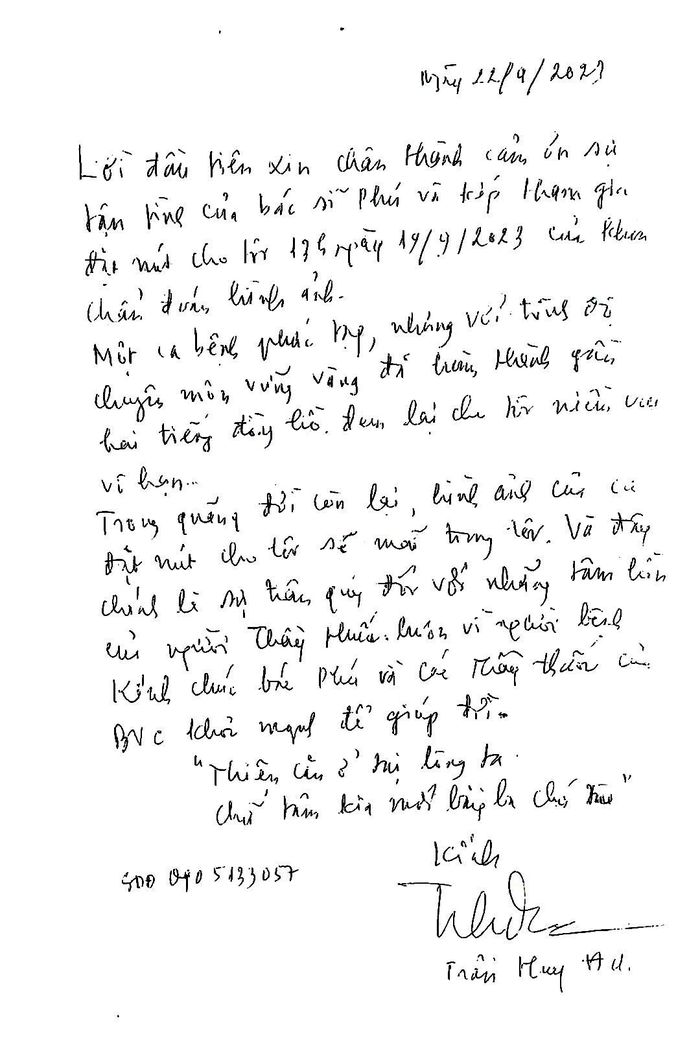 Ngày 22/9/2023
Lời đầu tiên xin chân thành cảm ơn sự
tận tình của bác sĩ Phú và kíp tham gia
đặt nút cho tôi 13h ngày 19/9/2023 của khoa
chẩn đoán hình ảnh.
Một ca bệnh phức tạp, nhưng với trình độ
chuyên môn vững vàng đã hoàn thành gần
hai tiếng đồng hồ. Đem lại cho tôi niềm vui
vô hạn...
Trong quãng đời còn lại, hình ảnh của ca
đặt nút cho tôi sẽ mãi trong tôi. Và đây
chính là sự trân quý đối với những tấm lòng
của người Thầy thuốc luôn vì người bệnh
Kính chúc bác Phú và các Thầy thuốc của
BVC khỏe mạnh để giúp đời.
"Thiện căn ở tại lòng ta
Chữ tâm kia mới bằng ba chữ tài"
Kính
SĐT 0905133057
Trần Huy